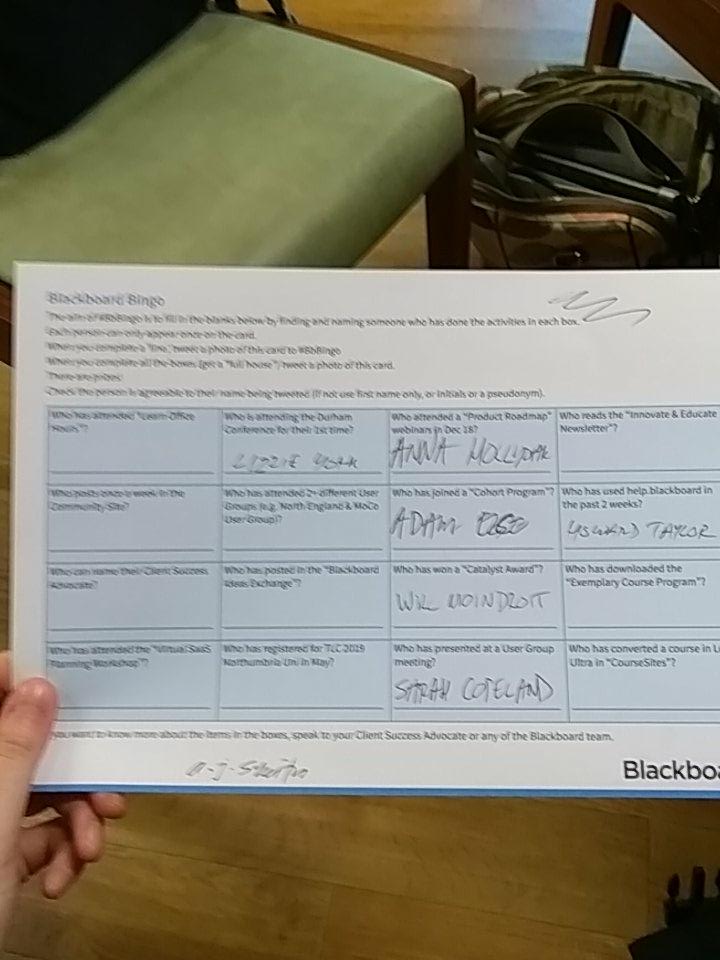 Blackboard Bingo
The aim of #BbBingo is to fill in the blanks below by finding and naming someone who has done the activities in each box.
Each person can only appear once on the card.
When you complete a "line," tweet a photo of this card to #BbBingo
When you complete all the boxes (get a "full house") tweet a photo of this card.
There are prizes!
Check the person is agreeable to their name being tweeted (if not use first name only, or initials or a pseudonym).
Who has attended "Learn Office
Hours"?
Who is attending the Durham
Conference for their 1st time?
LIZZIE
Who attended a "Product Roadmap"
webinars in Dec 18?
ANNA
Who reads the "Innovate & Educate
Newsletter"?
Who posts once a week in the
Community Site?
Who has attended 2+ different User
Groups (e.g. North England & MoCo
User Group)?
Who has joined a "Cohort Program"?
ADAM
Who has used help.blackboard in
the past 2 weeks?
TAYLOR
Who can name their Client Success
Advocate?
Who has posted in the "Blackboard
Ideas Exchange"?
Who has won a "Catalyst Award"?
WILL MOINDROT
Who has downloaded the
"Exemplary Course Program"?
Who has attended the "Virtual SaaS
Planning Workshop"?
Who has registered for TLC 2019
Northumbria Uni in May?
Who has presented at a User Group
meeting?
SARAH COPELAND
Who has converted a course in L
Ultra in "CourseSites"?
you want to know more about the items in the boxes, speak to your Client Success Advocate or any of the Blackboard team.
Blackboa